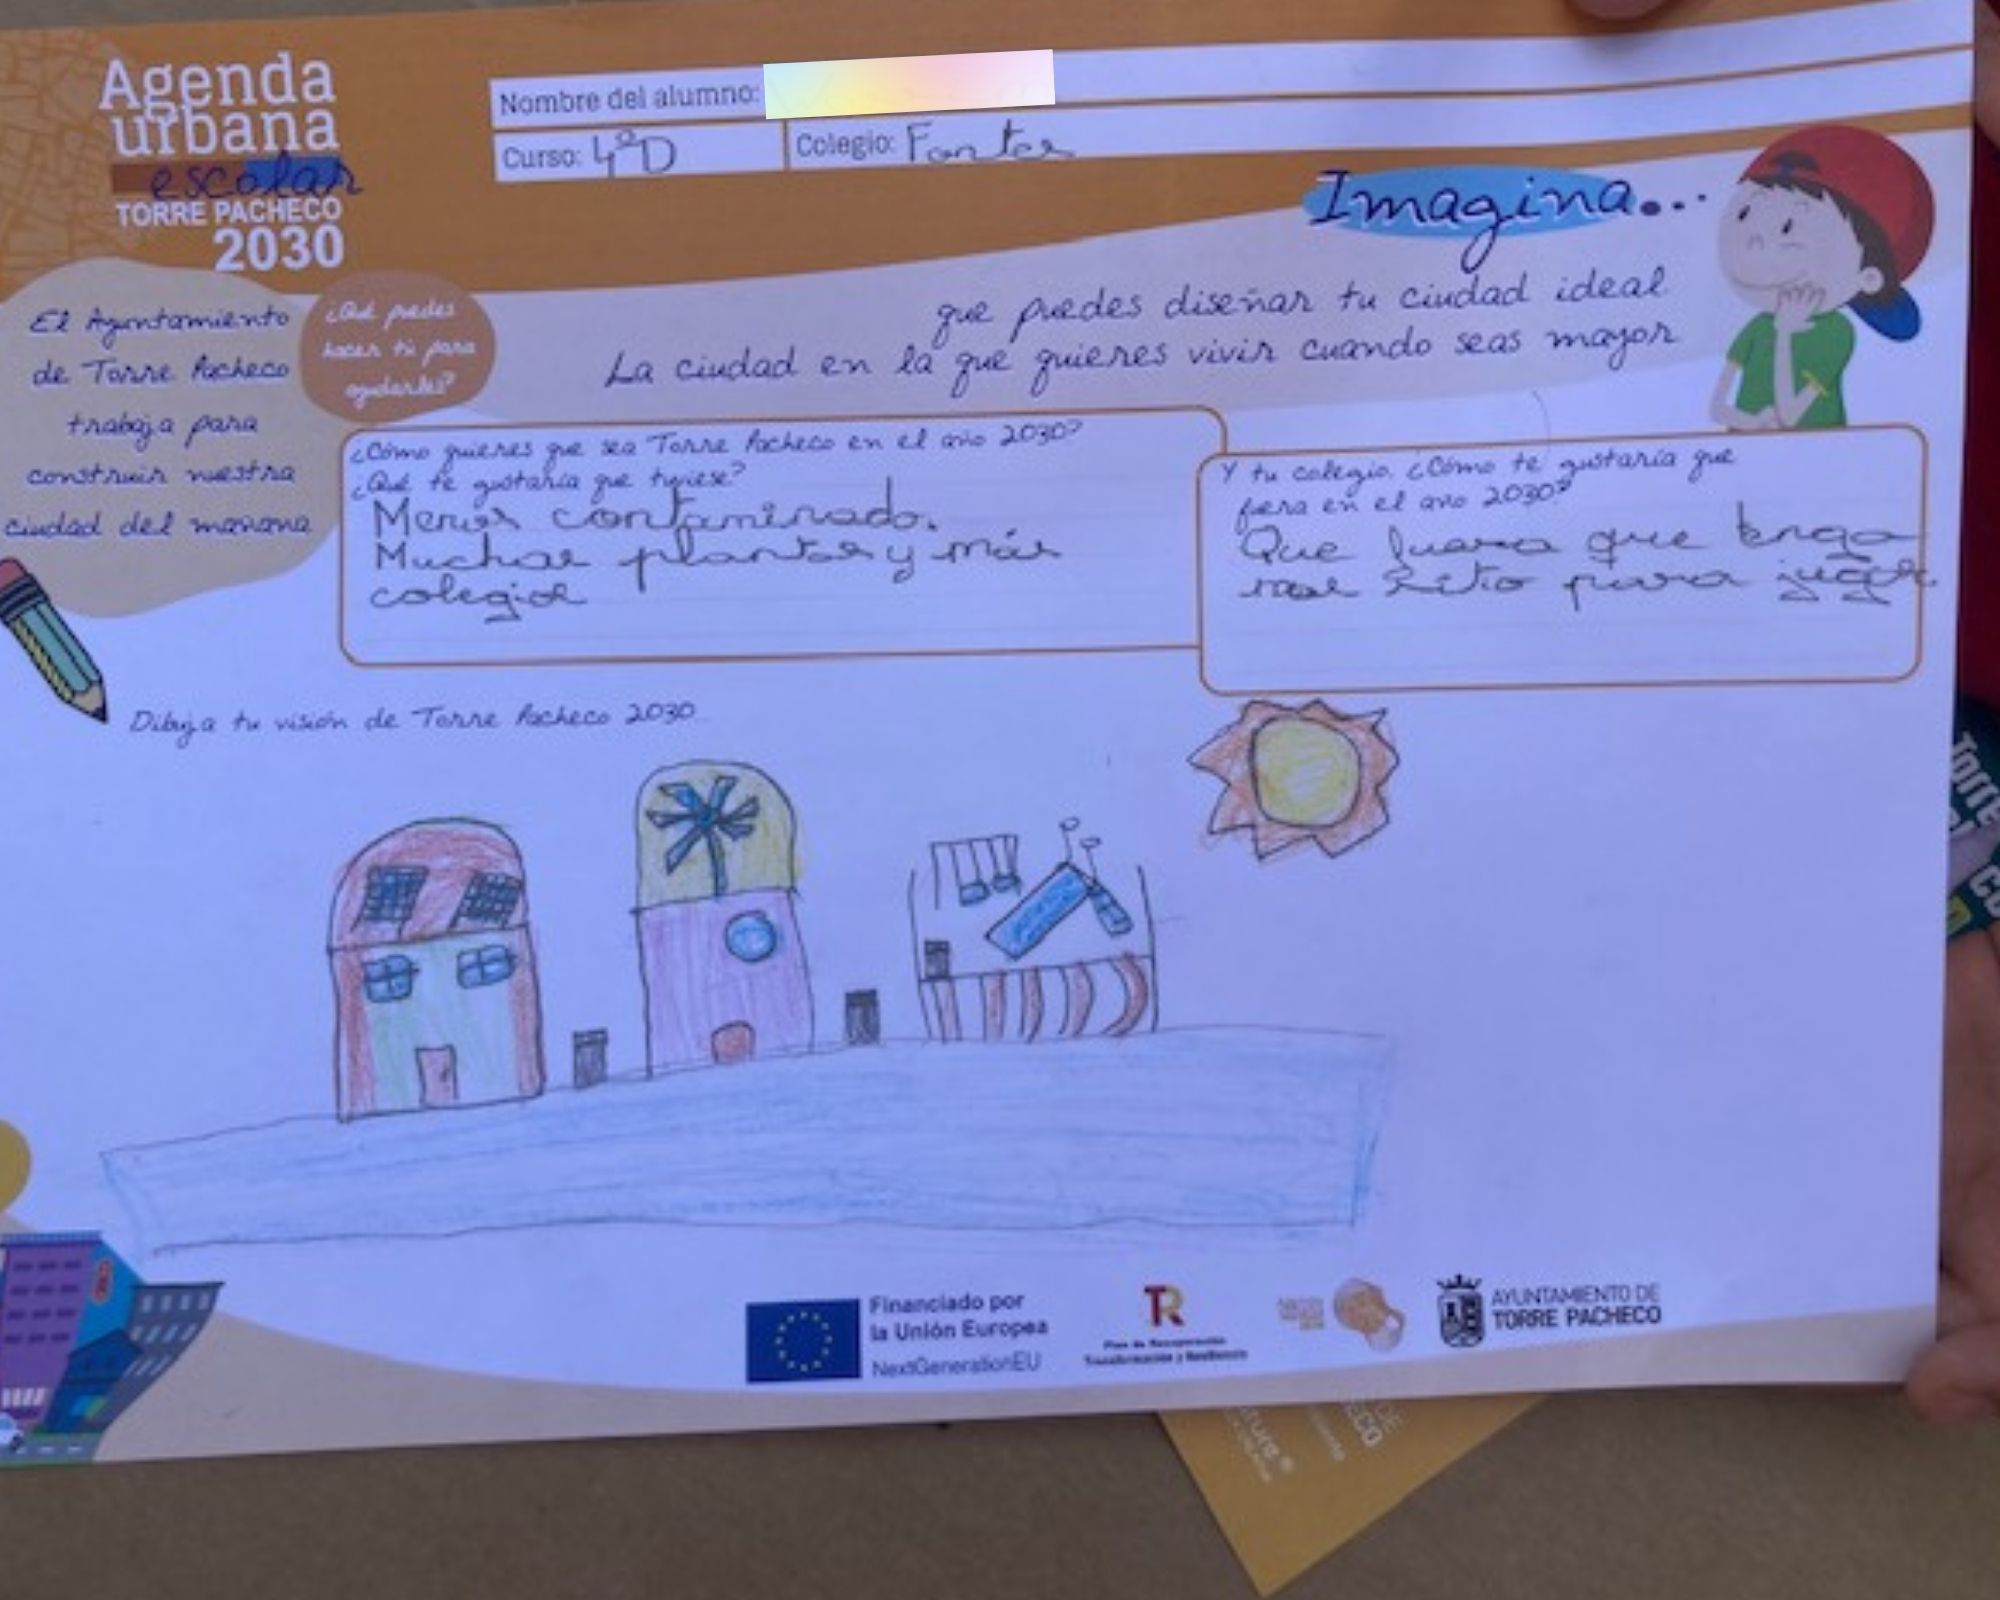 Agenda
urbana
escolar
TORRE PACHECO
2030
Nombre del alumno:
Curso: 4ºD
Colegio: Fontes
Imagina...
que puedes diseñar tu ciudad ideal
La ciudad en la que quieres vivir cuando seas mayor
El Ayuntamiento
de Torre Pacheco
trabaja para
construir nuestra
ciudad del mañana
¿Qué puedes
hacer tú para
ayudarles?
¿Cómo quieres que sea Torre Pacheco en el año 2030?
¿Qué te gustaría que tuviese?
Menos contaminado.
Muchas plantas y más
colegios
Y tu colegio ¿Cómo te gustaría que
fuera en el año 2030?
Que fuera que tenga
mas sitio para jugar.
Dibuja tu visión de Torre Pacheco 2030
Financiado por
la Unión Europea
NextGenerationEU
TR
Plan de Recuperación
Transformación y Resiliencia
AYUNTAMIENTO DE
TORRE PACHECO